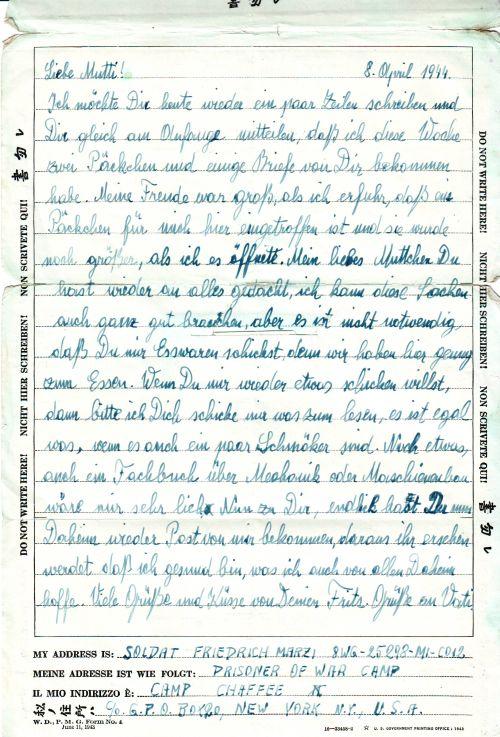 Liebe Mutti! 8. April 1944.
Ich möchte Dir heute wieder ein paar Zeilen schreiben und
Dir gleich am Anfange mitteilen, daß ich diese Woche
zwei Päckchen und einige Briefe von Dir bekommen
habe. Meine Freude war groß, als ich erfuhr, daß ein
Päckchen für mich hier eingetroffen ist und sie wurde
noch größer, als ich es öffnete. Mein liebes Muttchen Du
hast wieder an alles gedacht, ich kann diese Sachen
auch ganz gut brauchen, aber es ist nicht notwendig
daß Du mir Esswaren schickst, denn wir haben hier genug
zum Essen. Wenn Du mir wieder etwas schicken willst,
dann bitte ich Dich schicke mir was zum lesen, es ist egal
was, wenn es auch ein paar Schmöker sind. Noch etwas,
auch ein Fachbuch über Mechanik oder Maschinenbau
wäre mir sehr lieb. Nun zu Dir, endlich hast Du nun
Daheim wieder Post von mir bekommen, daraus ihr ersehen
werdet daß ich gesund bin, was ich auch von allen Daheim
hoffe. Viele Grüße und Küsse von Deinem Fritz. Grüße an Vati
DO NOT WRITE HERE! NICHT HIER SCHREIBEN! NON SCRIVETE QUI! 書勿レ
DO NOT WRITE HERE! NICHT HIER SCHREIBEN! NON SCRIVETE QUI! 書勿レ
MY ADDRESS IS: SOLDAT FRIEDRICH MARZI 8WG-25298-MI-CO12
MEINE ADRESSE IST WIE FOLGT: PRISONER OF WAR CAMP
IL MIO INDIRIZZO È: CAMP CHAFFEE
私ノ住所: c/o G.P.O. BOX 20, NEW YORK N.Y., U.S.A.
W. D., P. M. G. Form No. 4
June 11, 1943
16—33458-2 ☆ U. S. GOVERNMENT PRINTING OFFICE : 1943